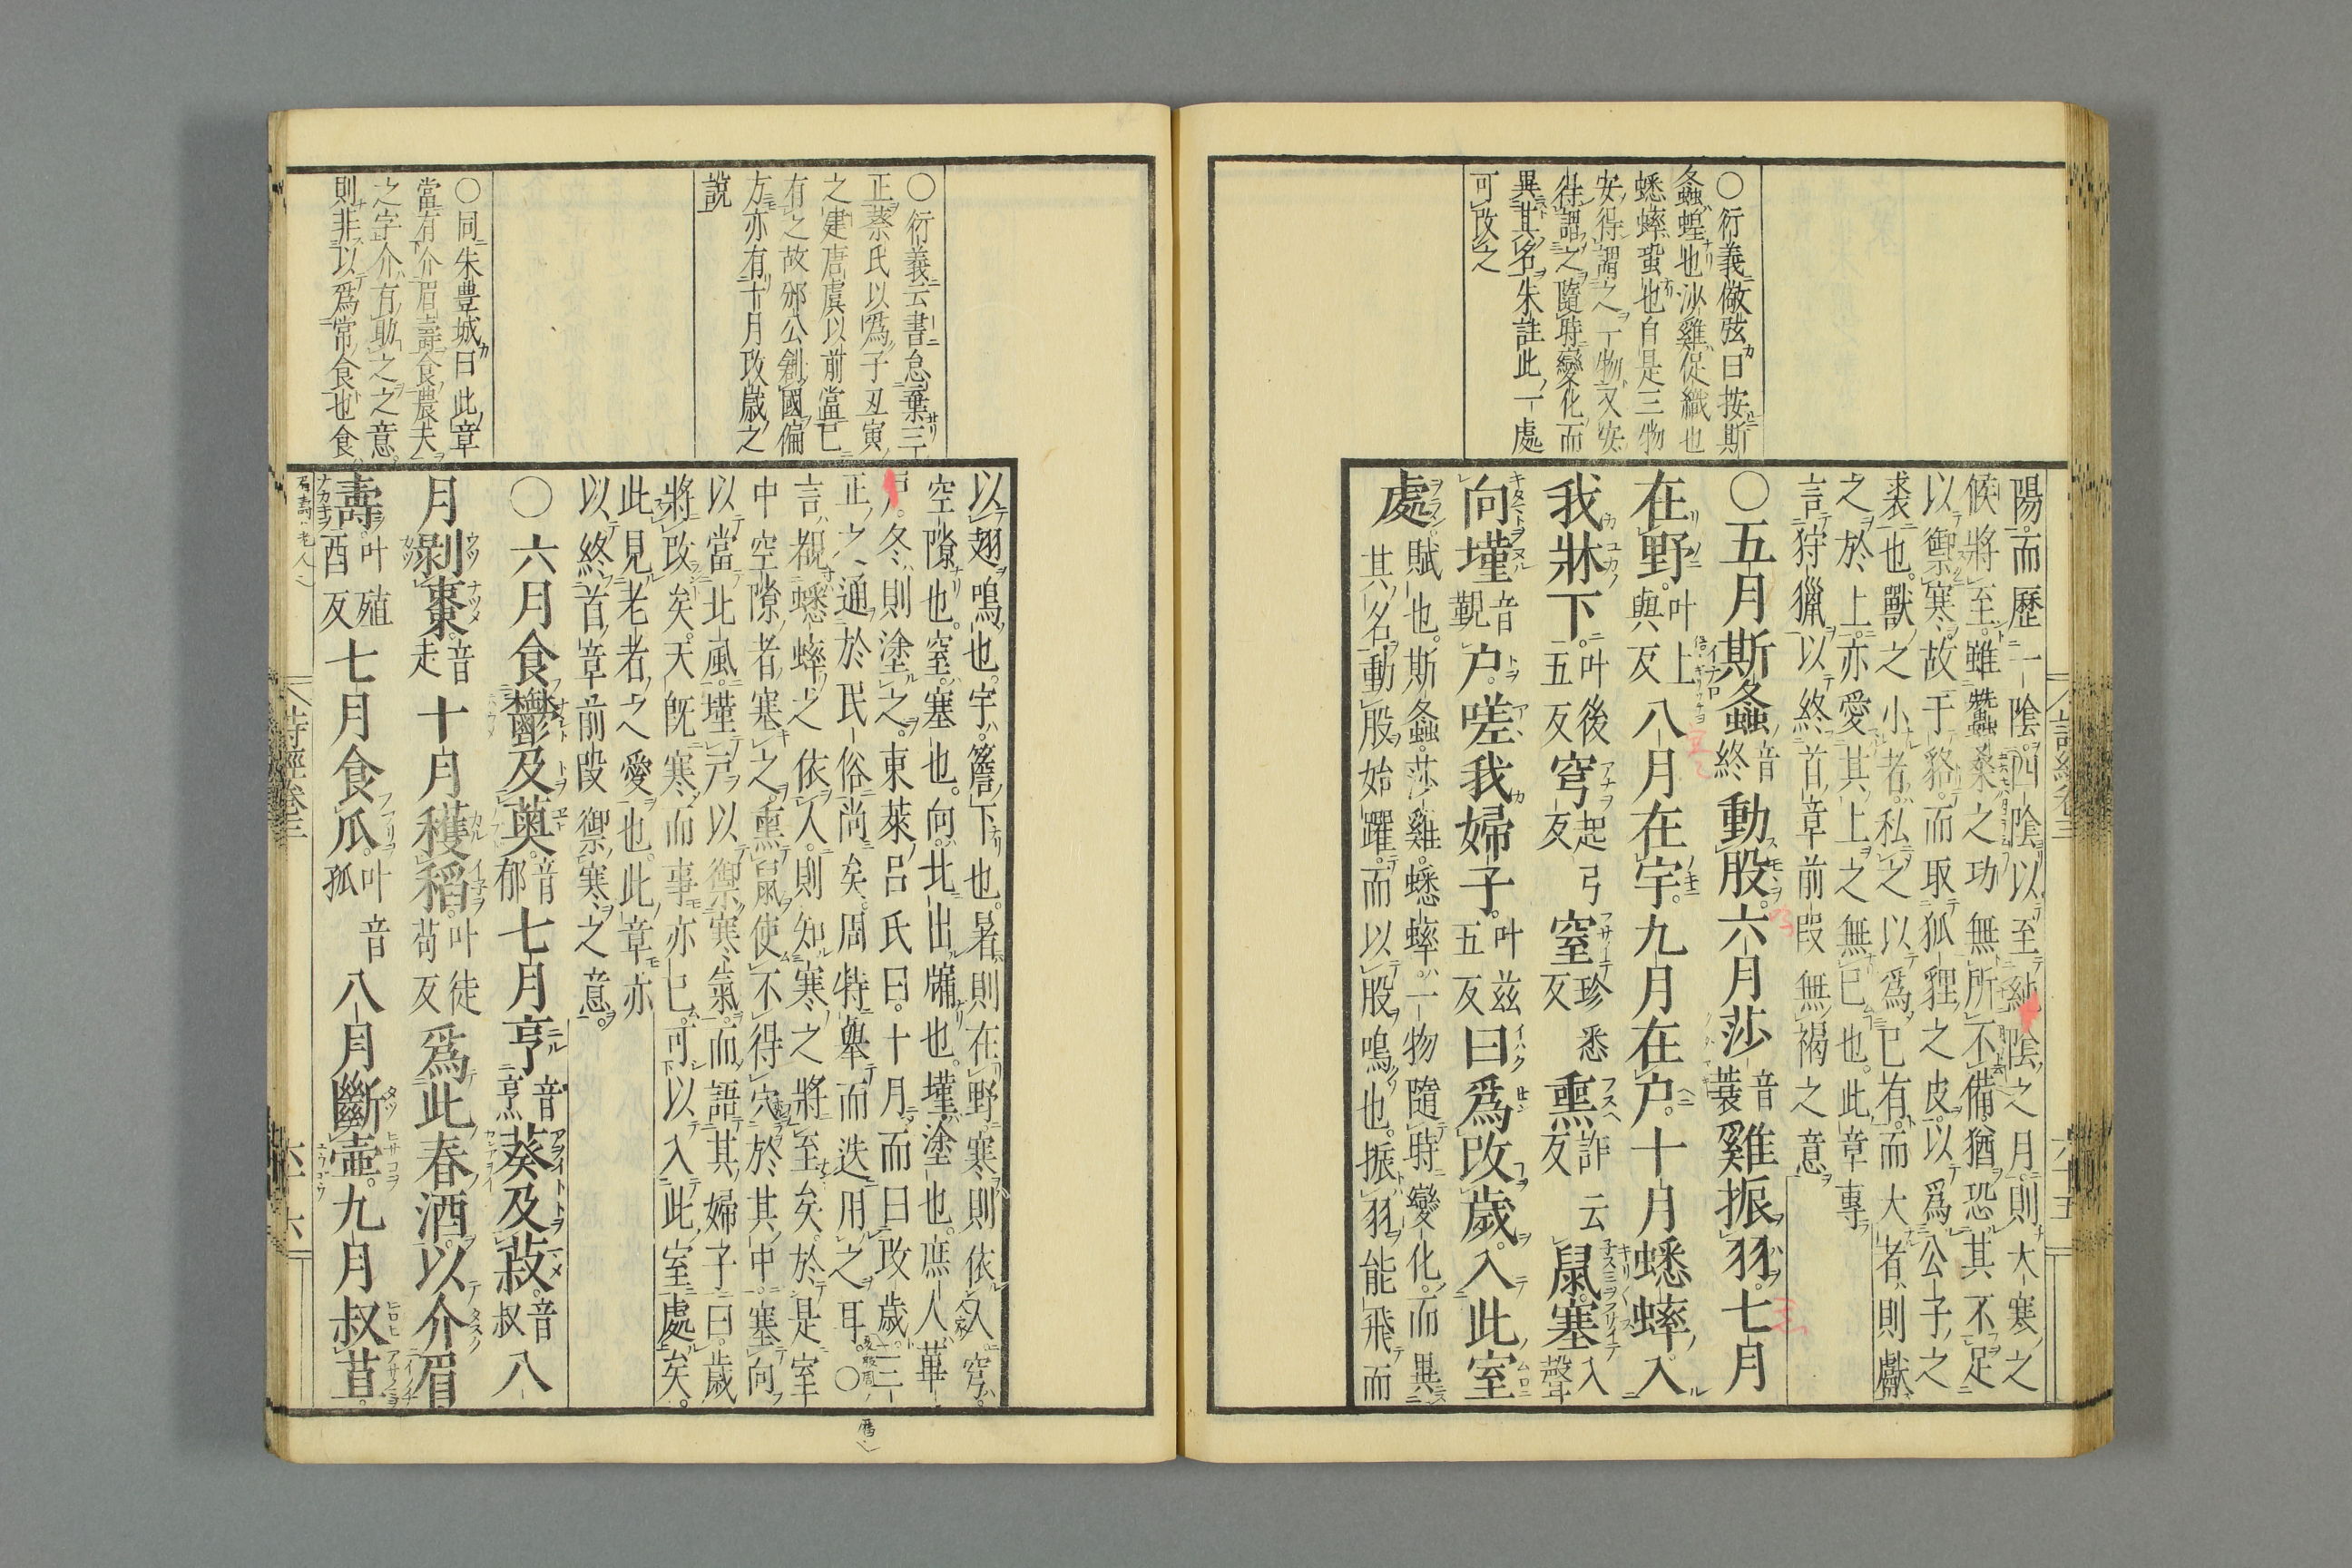 〇衍義倣弦曰按斯
螽蝗也沙雞促織也
蟋蟀蛩也自是三物
安得謂之一物又安
得謂之隨時變化而
異其名朱註此一處
可改之
陽而歷一陰四陰以至純陰之月則大寒之
候將至雖蠶桑之功無所不備猶恐其不足
以禦寒故于貉而取狐狸之皮以爲公子之
裘也獸之小者私之以爲己有而大者則獻
之於上亦愛其上之無已也此章專
言狩獵以終首章前段無褐之意
〇五月斯螽音終動股六月莎音蓑雞振羽七月
在野叶上與反八月在宇九月在户十月蟋蟀入
我牀下叶後五反穹起弓反窒珍悉反熏詐云反鼠塞入聲
向墐音覲户嗟我婦子叶茲五反曰爲改歲入此室
處賦也斯螽莎雞蟋蟀一物隨時變化而異
其名動股始躍而以股鳴也振羽能飛而
詩經卷三
六十五
〇衍義云書怠棄三
正蔡氏以爲子丑寅
之建唐虞以前當已
有之故邠公創國偏
方亦有十月改歲之
說
〇同朱豊城曰此章
當有介眉壽食農夫
之字介有助之之意
則非以爲常食也食
以翅鳴也宇簷下也暑則在野寒則依人穹
空隙也窒塞也向北出牖也墐塗也庶人蓽
户冬則塗之東萊呂氏曰十月而曰改歲三
正之通於民俗尚矣周特舉而迭用之耳〇
言覩蟋蟀之依人則知寒之將至矣於是室
中空隙者塞之熏鼠使不得穴於其中塞向
以當北風墐户以禦寒氣而語其婦子曰歲
將改矣天旣寒而事亦已可以入此室處矣
此見老者之愛也此章亦
以終首章前段禦寒之意
〇六月食鬱及薁音郁七月亨音烹葵及菽音叔八
月剥棗音走十月穫稻叶徒苟反爲此春酒以介眉
壽叶殖酉反七月食瓜叶音孤八月斷壺九月叔苴
詩經卷三
六十六